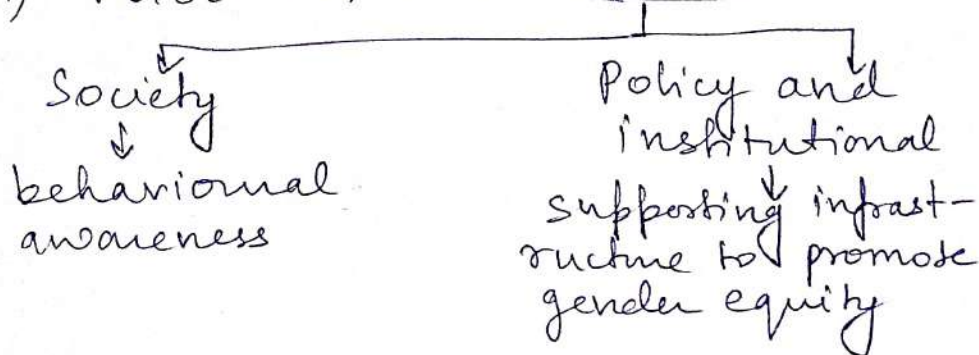 Society
behavioural
awareness
Policy and
institutional
supporting infrast-
ructure to promote
gender equity